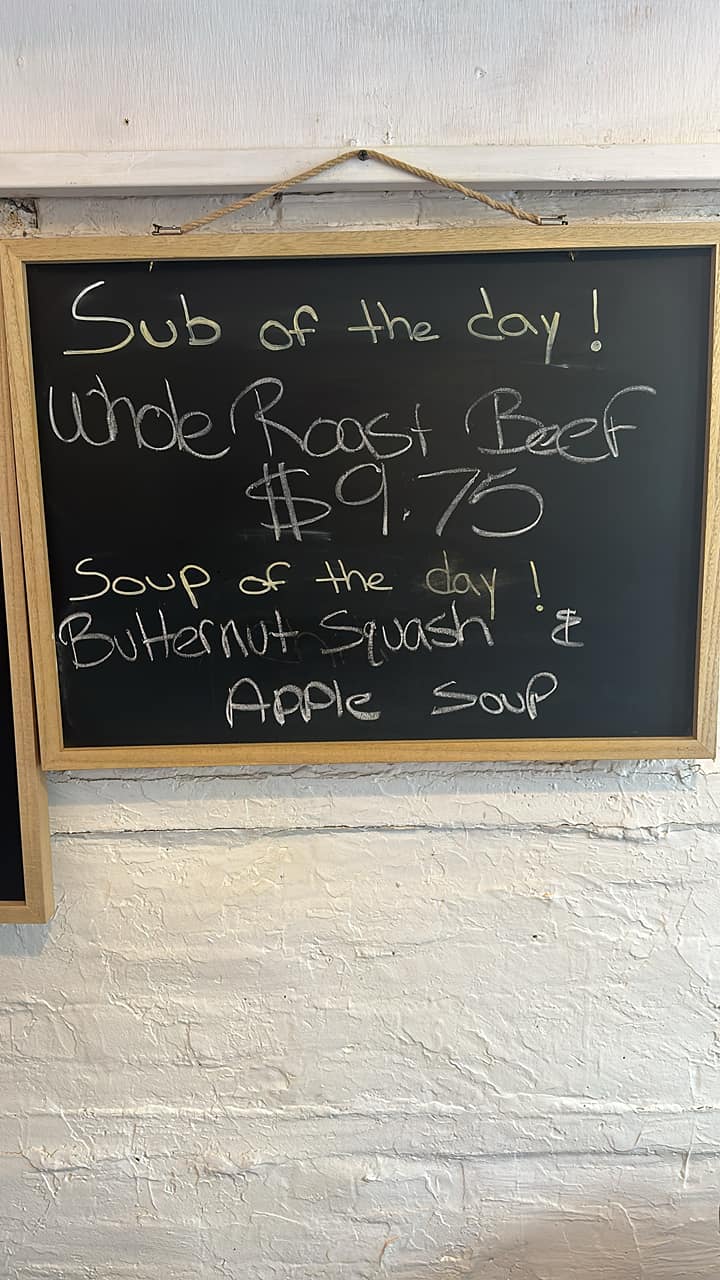 Sub of the day!
Whole Roast Beef
$9.75
Soup of the day!
Butternut Squash &
Apple Soup